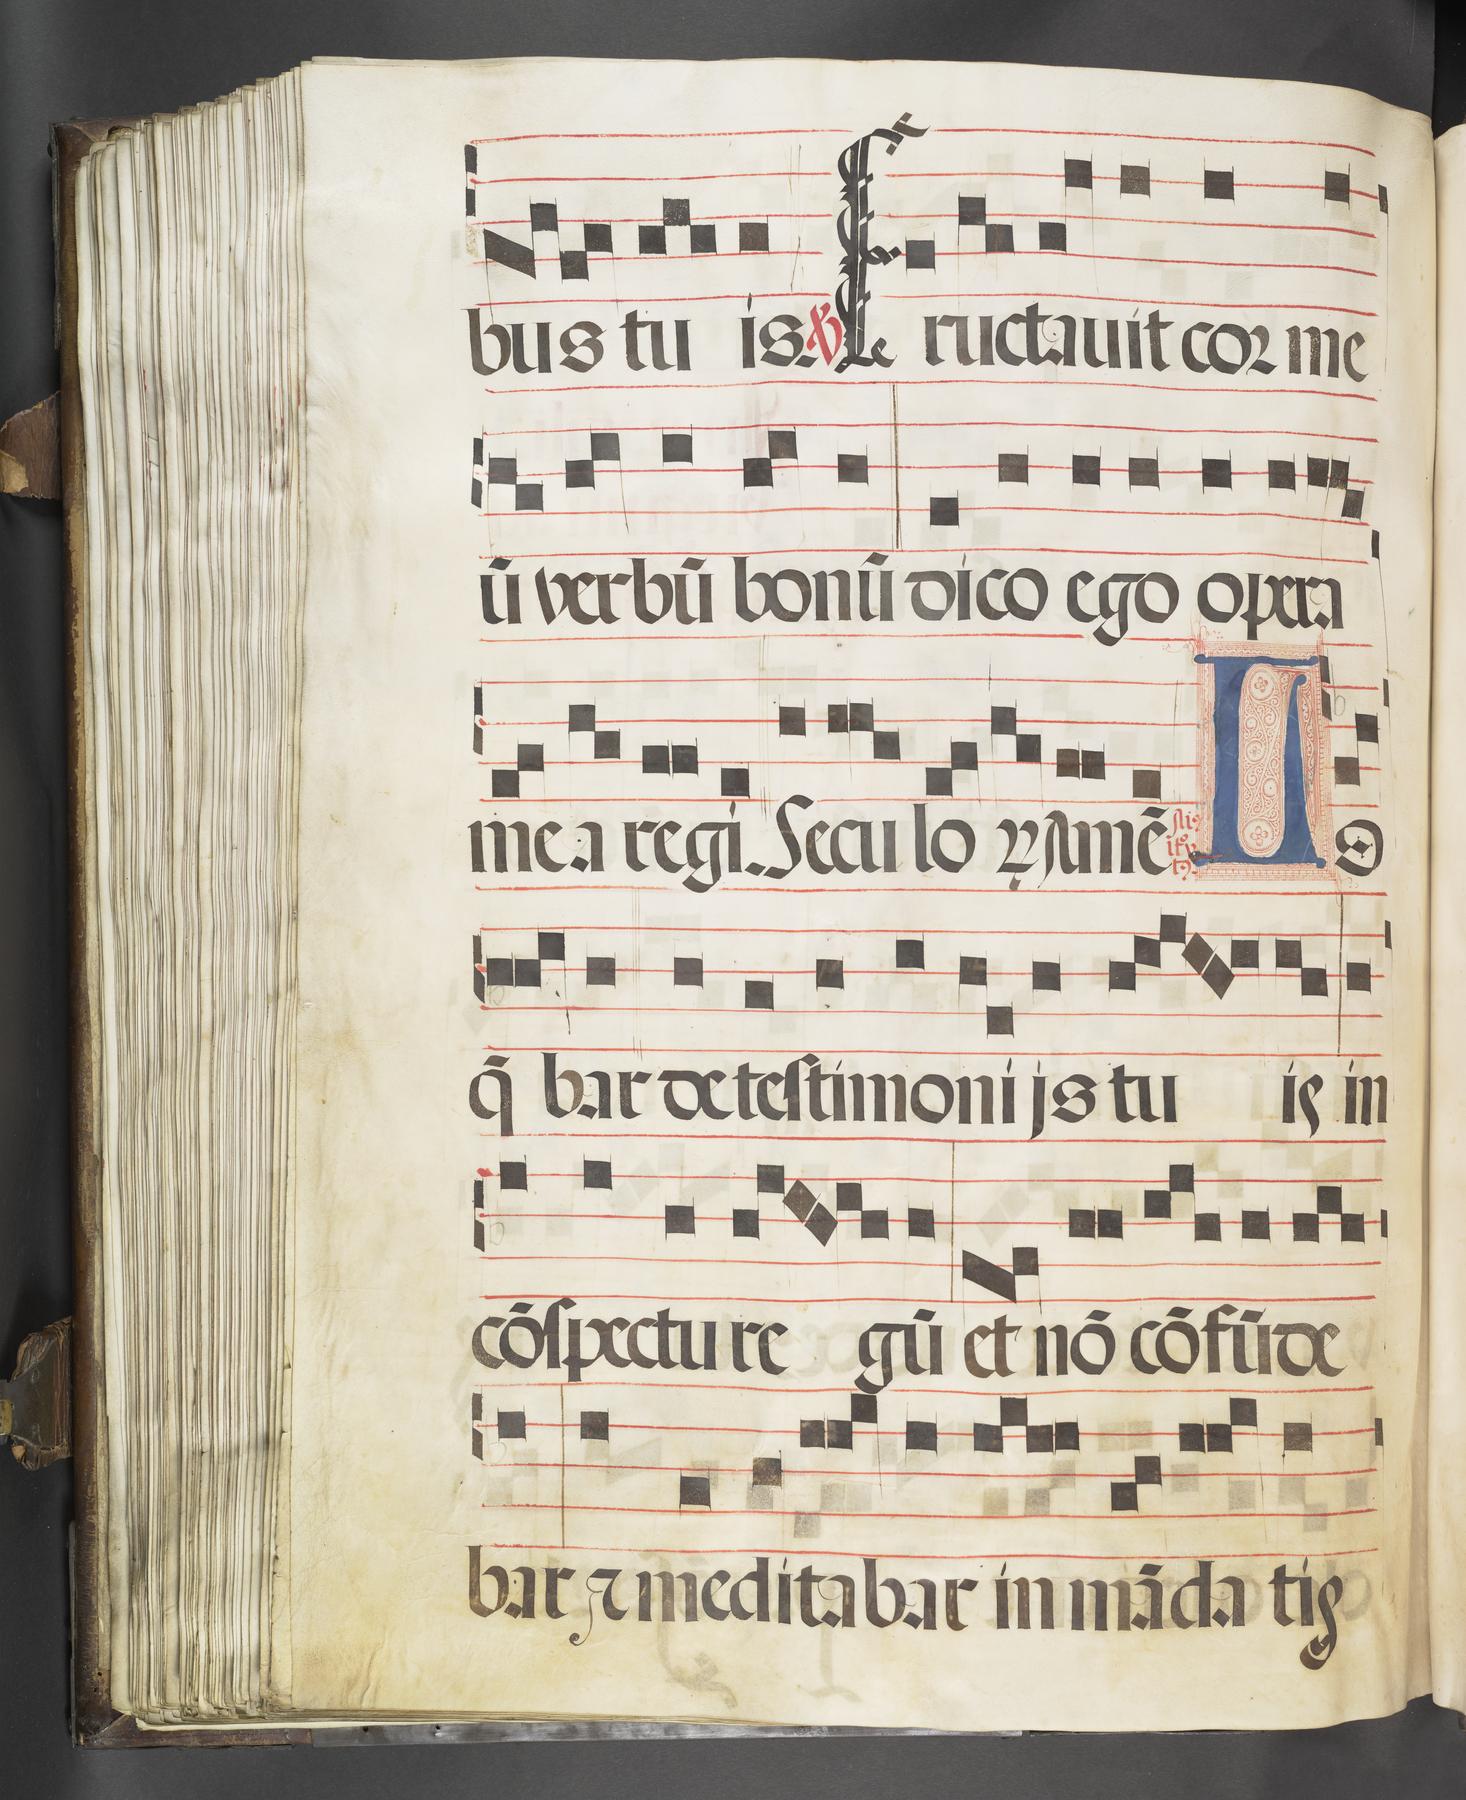 bus tu is. ℣ E ructauit cor me
ū verbū bonū dico ego opera
mea regi. Seculo ꝝ Amē L O
q̄ bar de testimonijs tu is in
cōspectu re gū et nō cōfūde
bar ⁊ meditabar in mādatis